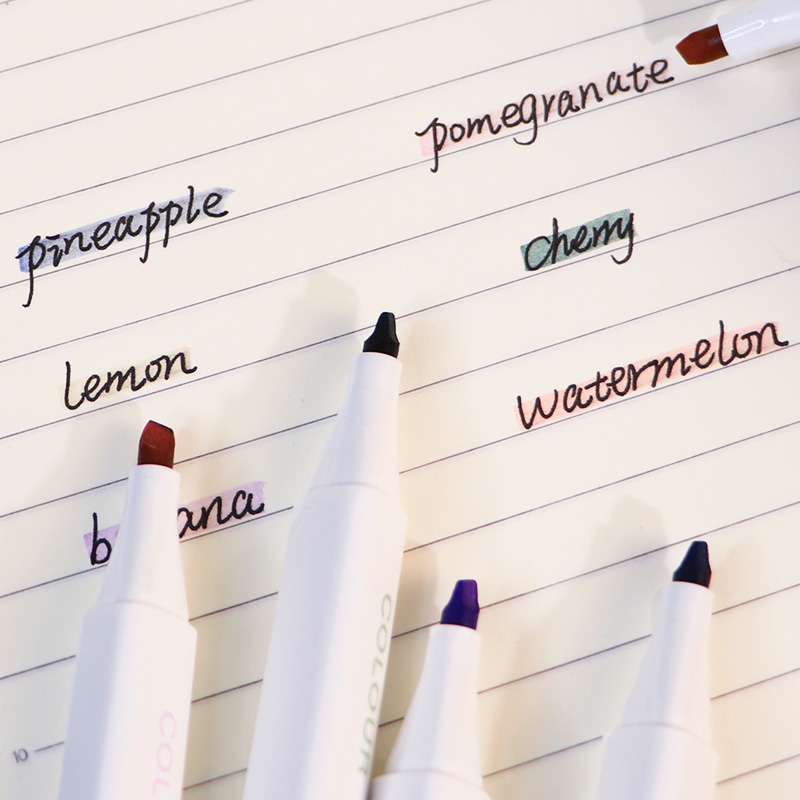 pomegranate
pineapple
cherry
lemon
watermelon
COLOUR
10